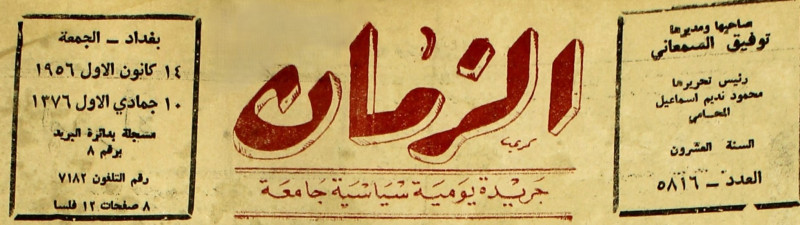 صاحبها ومديرها
توفيق السمعاني
رئيس تحريرها
محمود نديم اسماعيل
المحامي
السنة العشرون
العدد ــ ٥٨١٦
الزمان
جريدة يومية سياسية جامعة
بغداد ــ الجمعة
١٤ كانون الاول ١٩٥٦
١٠ جمادي الاول ١٣٧٦
مسجلة بدائرة البريد
برقم ٨
رقم التلفون ٧١٨٢
٨ صفحات ١٢ فلسا